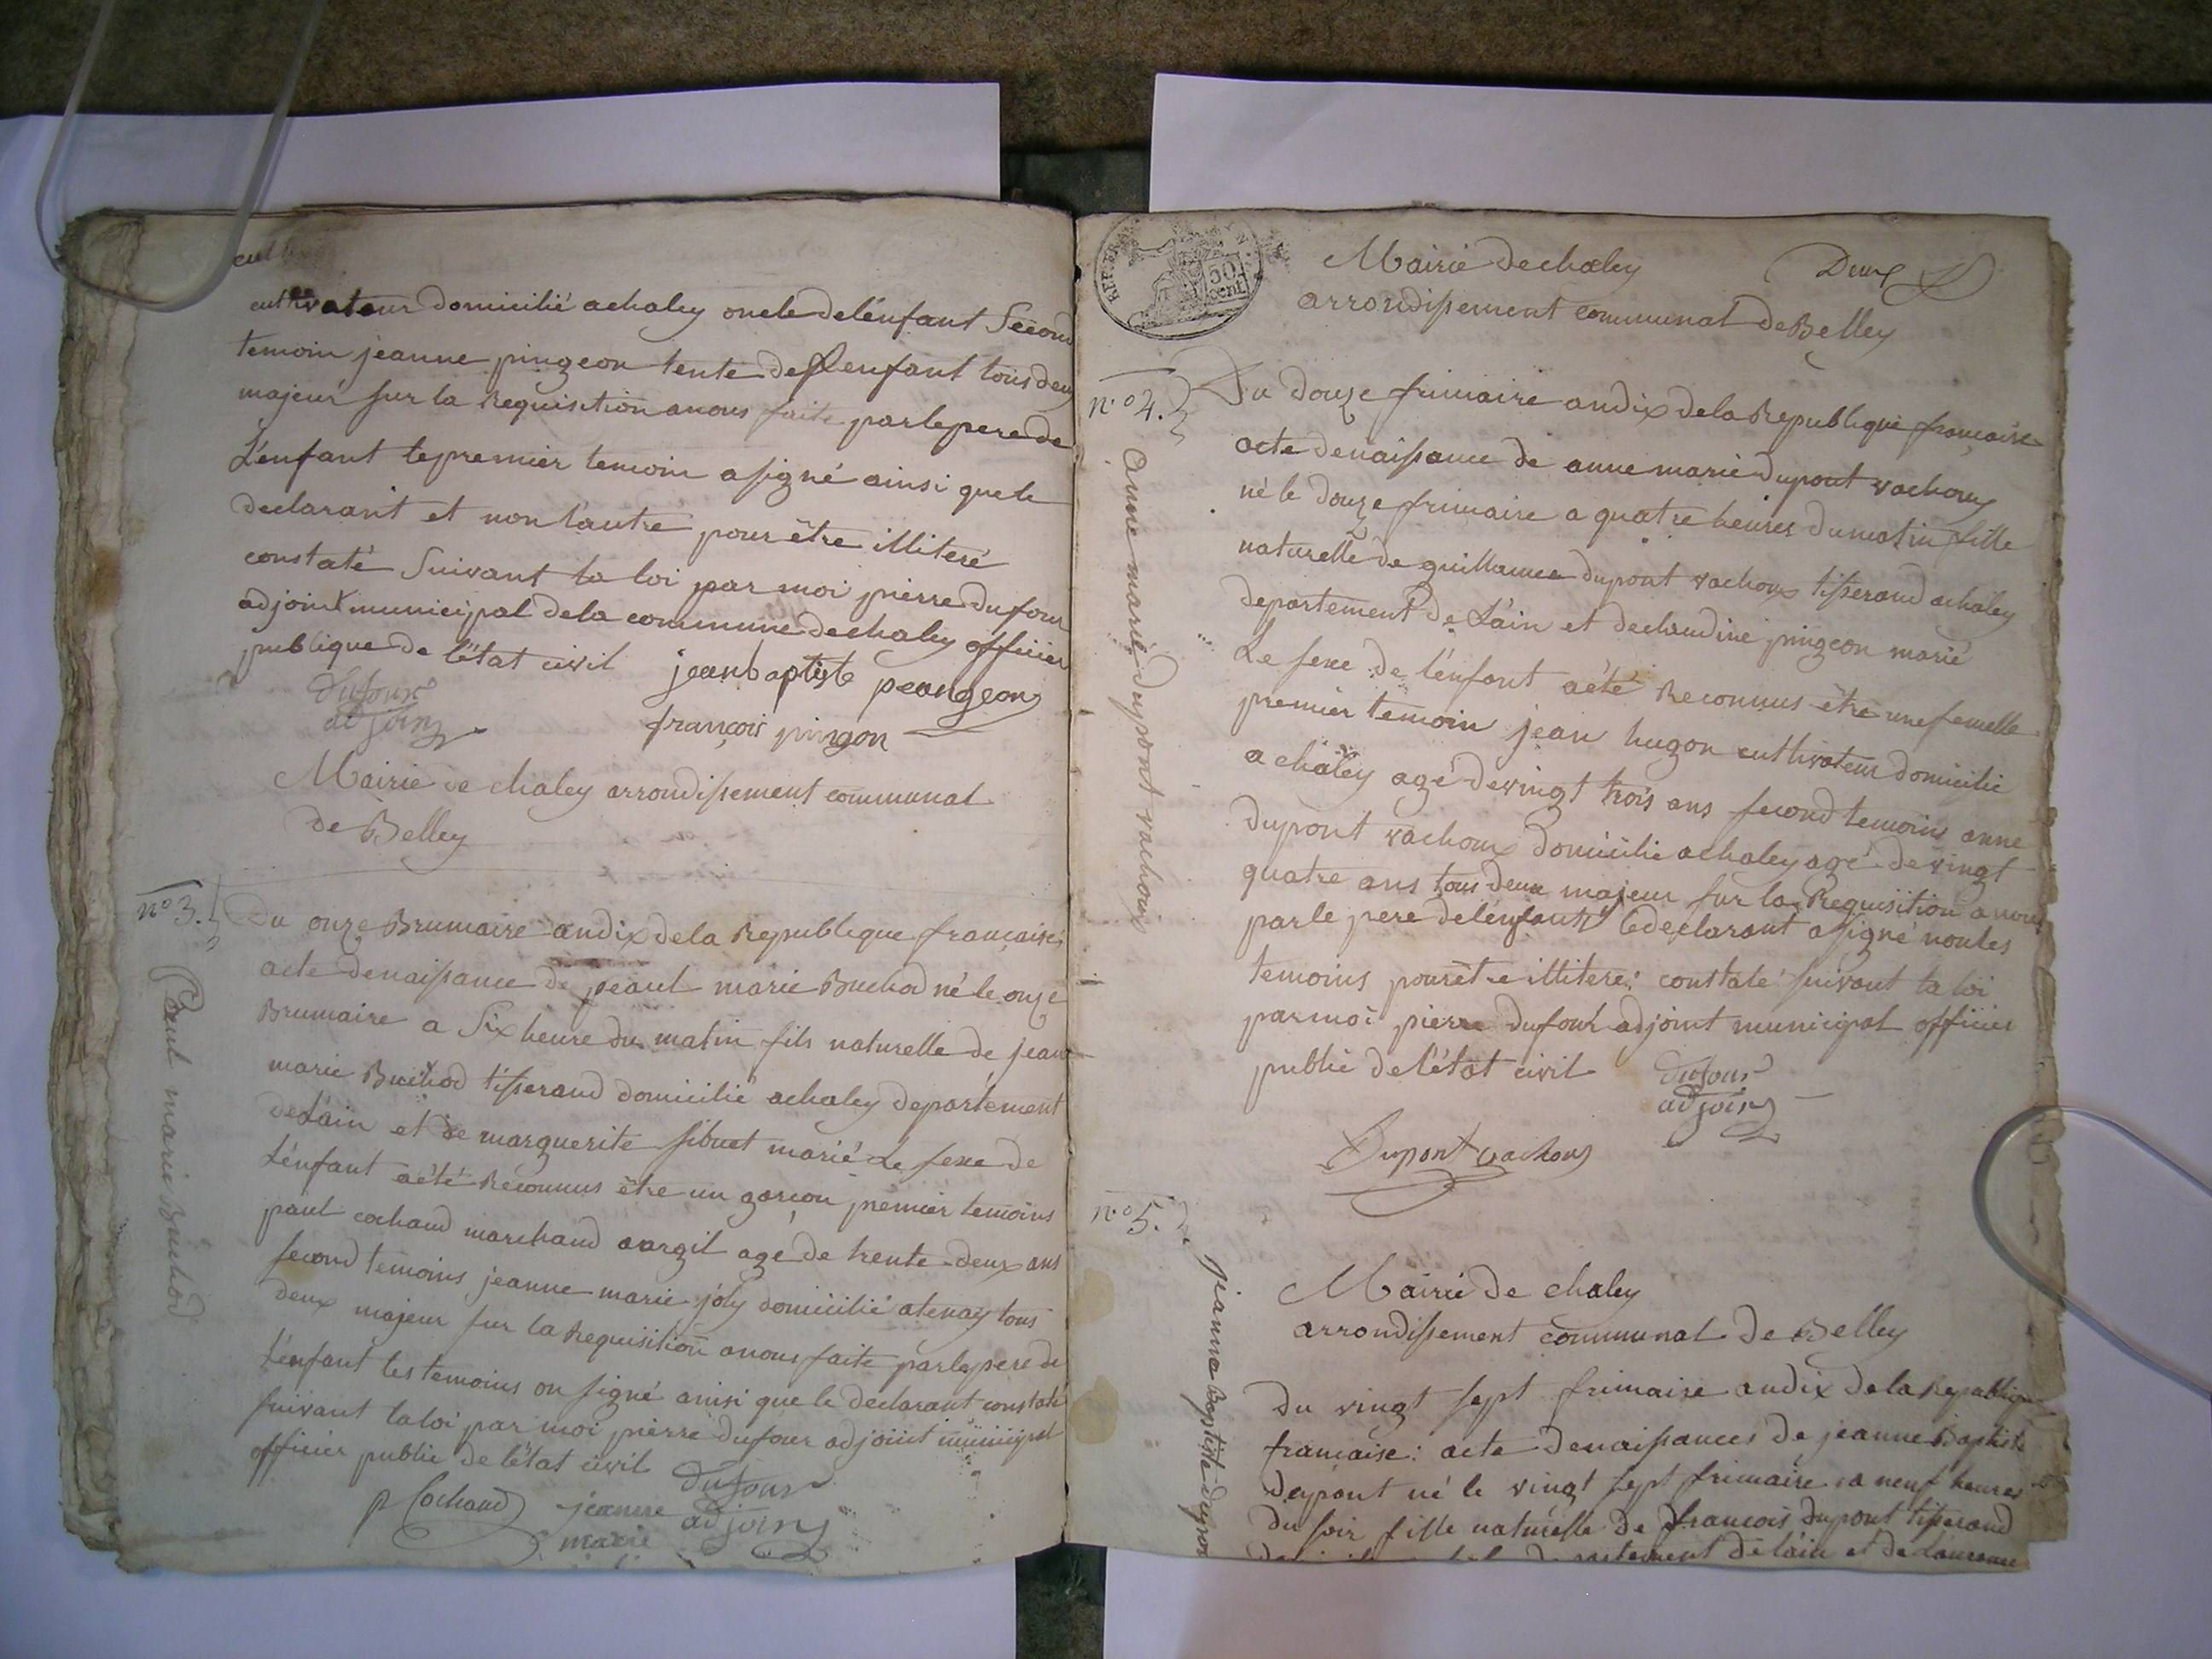 cul
cultivateur domicilié achaley oncle delénfant Second
temoin jeanne pingeon tente de lenfant tous deux
majeur sur la Requisition anous faite parlepere de
Lénfant lepremier temoin asigné ainsi quele
declarant et non l'autre pour être illiteré
constaté Suivant la loi par moi pierre dufour
adjoint municipal dela commune dechaley officier
publique de létat civil jeanbaptiste peangeon
dufour
adjoin françois pingon
Mairie de chaley arrondissement communal
de Belley
n° 3. Du onze Brumaire andix dela Republique française
acte denaissance de peaul marie Buchod né le onze
Brumaire a Six heure du matin fils naturelle de jean
marie Buchod tisserand domicilié achaley departement
deLáin et de marguerite sibuet marié Le sexe de
Lénfant aété Reconnus être un garçon premier temoins
paul cochaud marchand aargil agé de trente deux ans
second temoins jeanne marie joly domicilié atenay tous
deux majeur sur la Requisition anous faite parlepere de
Lénfant les temoins on signé ainsi que le declarant constaté
suivant laloi par moi pierre dufour adjoint municipal
officier public de létat civil
dufour
p Cochaud jeanne adjoin
marie
Paul marie Buchod
REP. FRA
50
cent
Mairie dechaley Deux
arrondissement communal deBelley
n° 4. Du douze frimaire andix dela Republique française
acte denaissance de anne marie dupont vachoux
né le douze frimaire a quatre heures dumatin fille
naturelle de guillaume dupont vachoux tisserand achaley
departement de Láin et declaudine pingeon marié
Le sexe de lénfant aété Reconnus être une femelle
premier temoin jean hugon cultivateur domicilié
a chaley agé devingt trois ans second temoins anne
dupont vachoux domicilié achaley agé de vingt
quatre ans tous deux majeur sur la Requisition a nous
parle pere delénfant ledeclarant asigné nonles
temoins pourêtre illiteré: constaté suivant la loi
parmoi pierre dufour adjoint municipal officier
public delétat civil dufour
adjoin
Dupont vachoux
anne marie dupont vachoux
n° 5.
Mairie de chaley
arrondissement communal de Belley
du vingt sept frimaire andix dela Republique
francaise: acte denaissances de jeanne Baptiste
dupont né le vingt sept frimaire a neuf heures
du soir fille naturelle de francois dupont tisserand
departement de láin et de Laurence
jeanne Baptiste dupon